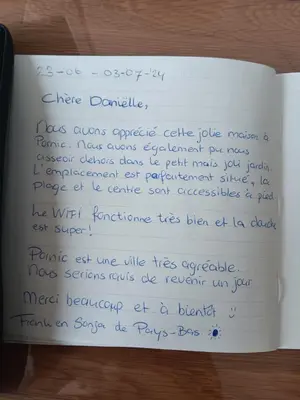 23-06 - 03-07-'24
Chère Daniëlle,
Nous avons apprécié cette jolie maison à
Pornic. Nous avons également pu nous
asseoir dehors dans le petit mais joli jardin.
L'emplacement est parfaitement situé, la
plage et le centre sont accessibles à pied
Le WiFi fonctionne très bien et la douche
est super!
Pornic est une ville très agréable.
Nous serions ravis de revenir un jour
Merci beaucoup et à bientôt !!
Frank en Sonja de Pays-Bas